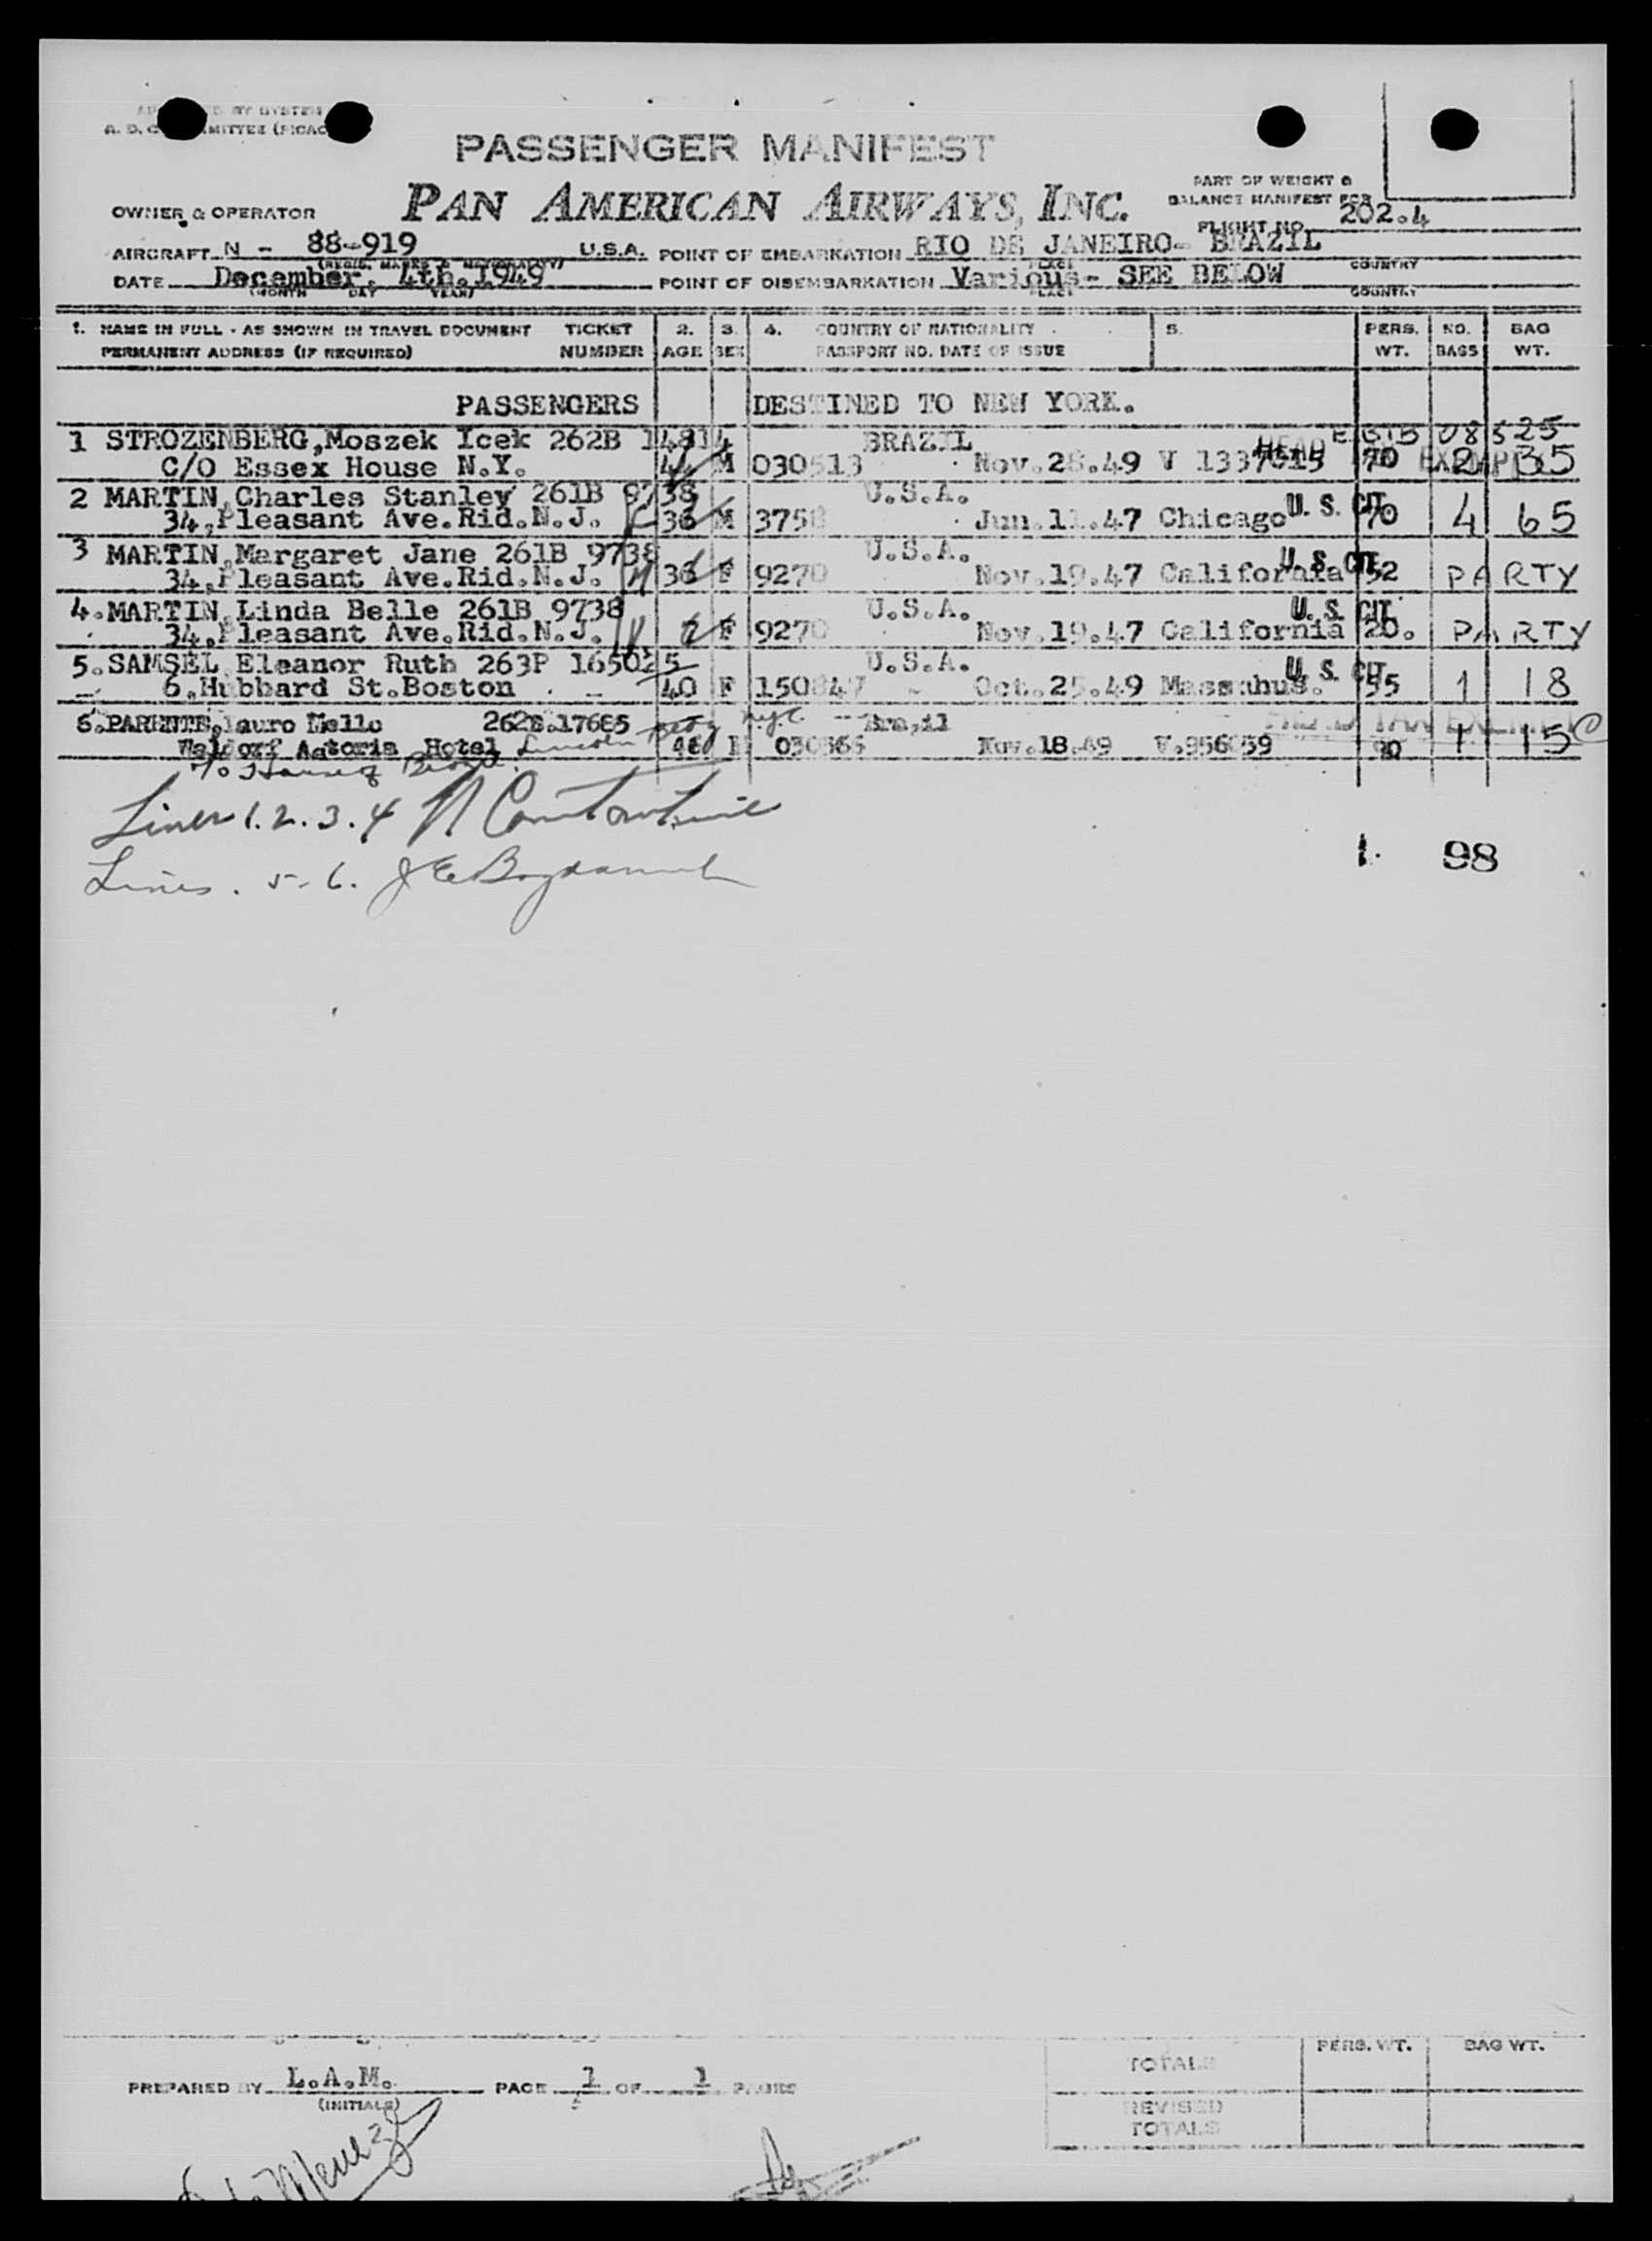 PASSENGER MANIFEST
PAN AMERICAN AIRWAYS, INC.
PART OF WEIGHT &
BALANCE MANIFEST FOR
FLIGHT NO. 202.4
OWNER & OPERATOR
AIRCRAFT N - 88-919 U.S.A. POINT OF EMBARKATION RIO DE JANEIRO- BRAZIL
(REGIS. MARKS & NATIONALITY) PLACE COUNTRY
DATE December, 4th.1949 POINT OF DISEMBARKATION Various- SEE BELOW
(MONTH DAY YEAR) PLACE COUNTRY
1. NAME IN FULL - AS SHOWN IN TRAVEL DOCUMENT TICKET 2. 3. 4. COUNTRY OF NATIONALITY 5. PERS. NO. BAG
PERMANENT ADDRESS (IF REQUIRED) NUMBER AGE SEX PASSPORT NO. DATE OF ISSUE WT. BAGS WT.
PASSENGERS DESTINED TO NEW YORK.
1 STROZENBERG,Moszek Icek 262B 14814 BRAZIL HEAD
C/O Essex House N.Y. 44 M 030513 Nov.28.49 V 70 2 35
2 MARTIN,Charles Stanley 261B 9738 U.S.A. U. S. CIT.
34,Pleasant Ave.Rid.N.J. 36 M 3758 Jun.11.47 Chicago 70 4 65
3 MARTIN,Margaret Jane 261B 9738 U.S.A. U. S. CIT.
34,Pleasant Ave.Rid.N.J. 36 F 9270 Nov.19.47 California 52 PARTY
4.MARTIN,Linda Belle 261B 9738 U.S.A. U. S. CIT.
34,Pleasant Ave.Rid.N.J. 7 F 9270 Nov.19.47 California 20. PARTY
5.SAMSEL Eleanor Ruth 263P 165025 U.S.A. U. S. CIT.
6,Hubbard St.Boston 40 F 150847 Oct.25.49 Massahus. 55 1 18
6.PARENTE,Lauro Mello 262B.17685 Brazil
Waldorf Astoria Hotel Lincoln 030565 Nov.18.49 90 1 15
Lines 1.2.3.4
Lines. 5-6.
1. 98
PREPARED BY L.A.M. PAGE 1 OF 1 PAGES
(INITIALS)
PERS. WT. BAG WT.
TOTALS
REVISED
TOTALS